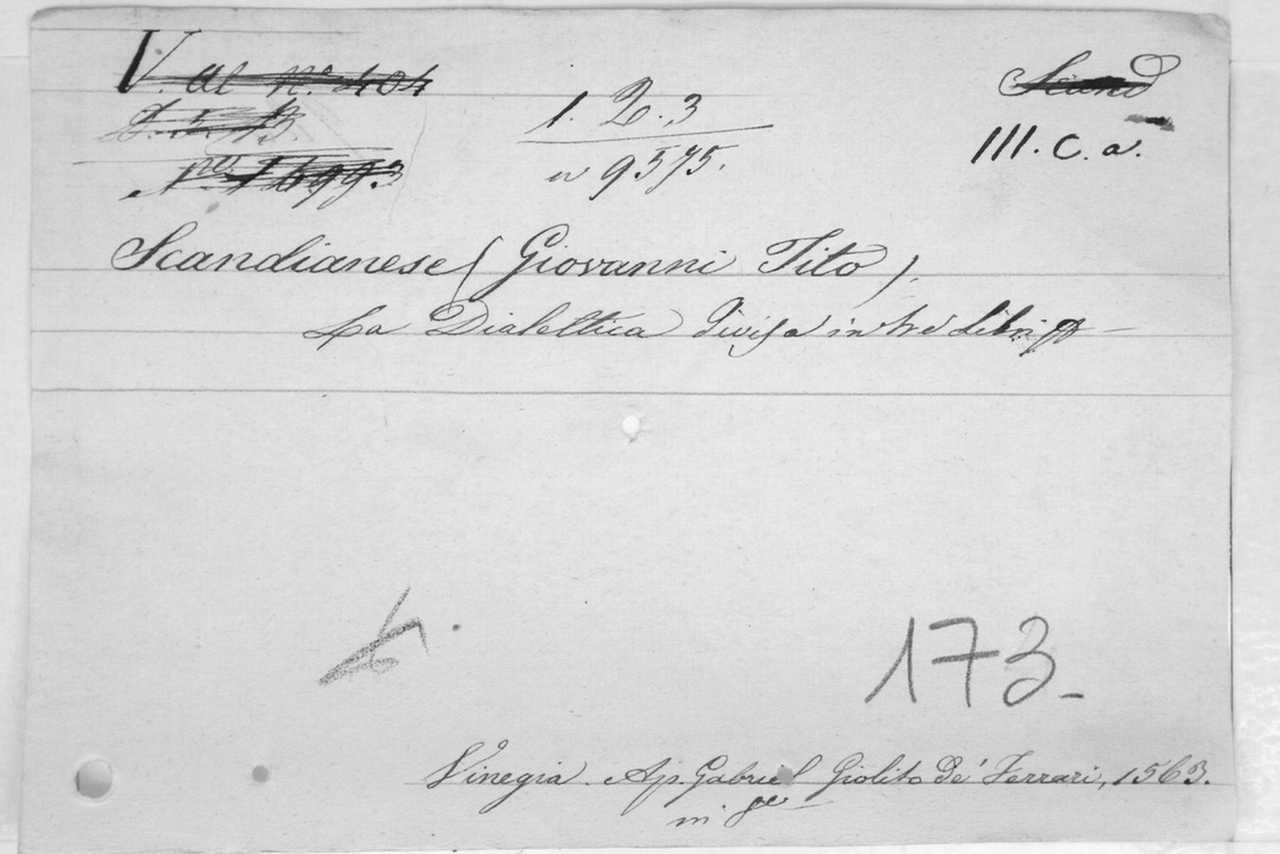 V. al nº. 404
1. 2.,3
nº 16993
n 9575.
Scand
III. C. a.
Scandianese (Giovanni Tito).
La Dialettica divisa in tre Libri
173_
Vinegia. Ap. Gabriel Giolito de' Ferrari, 1563.
in